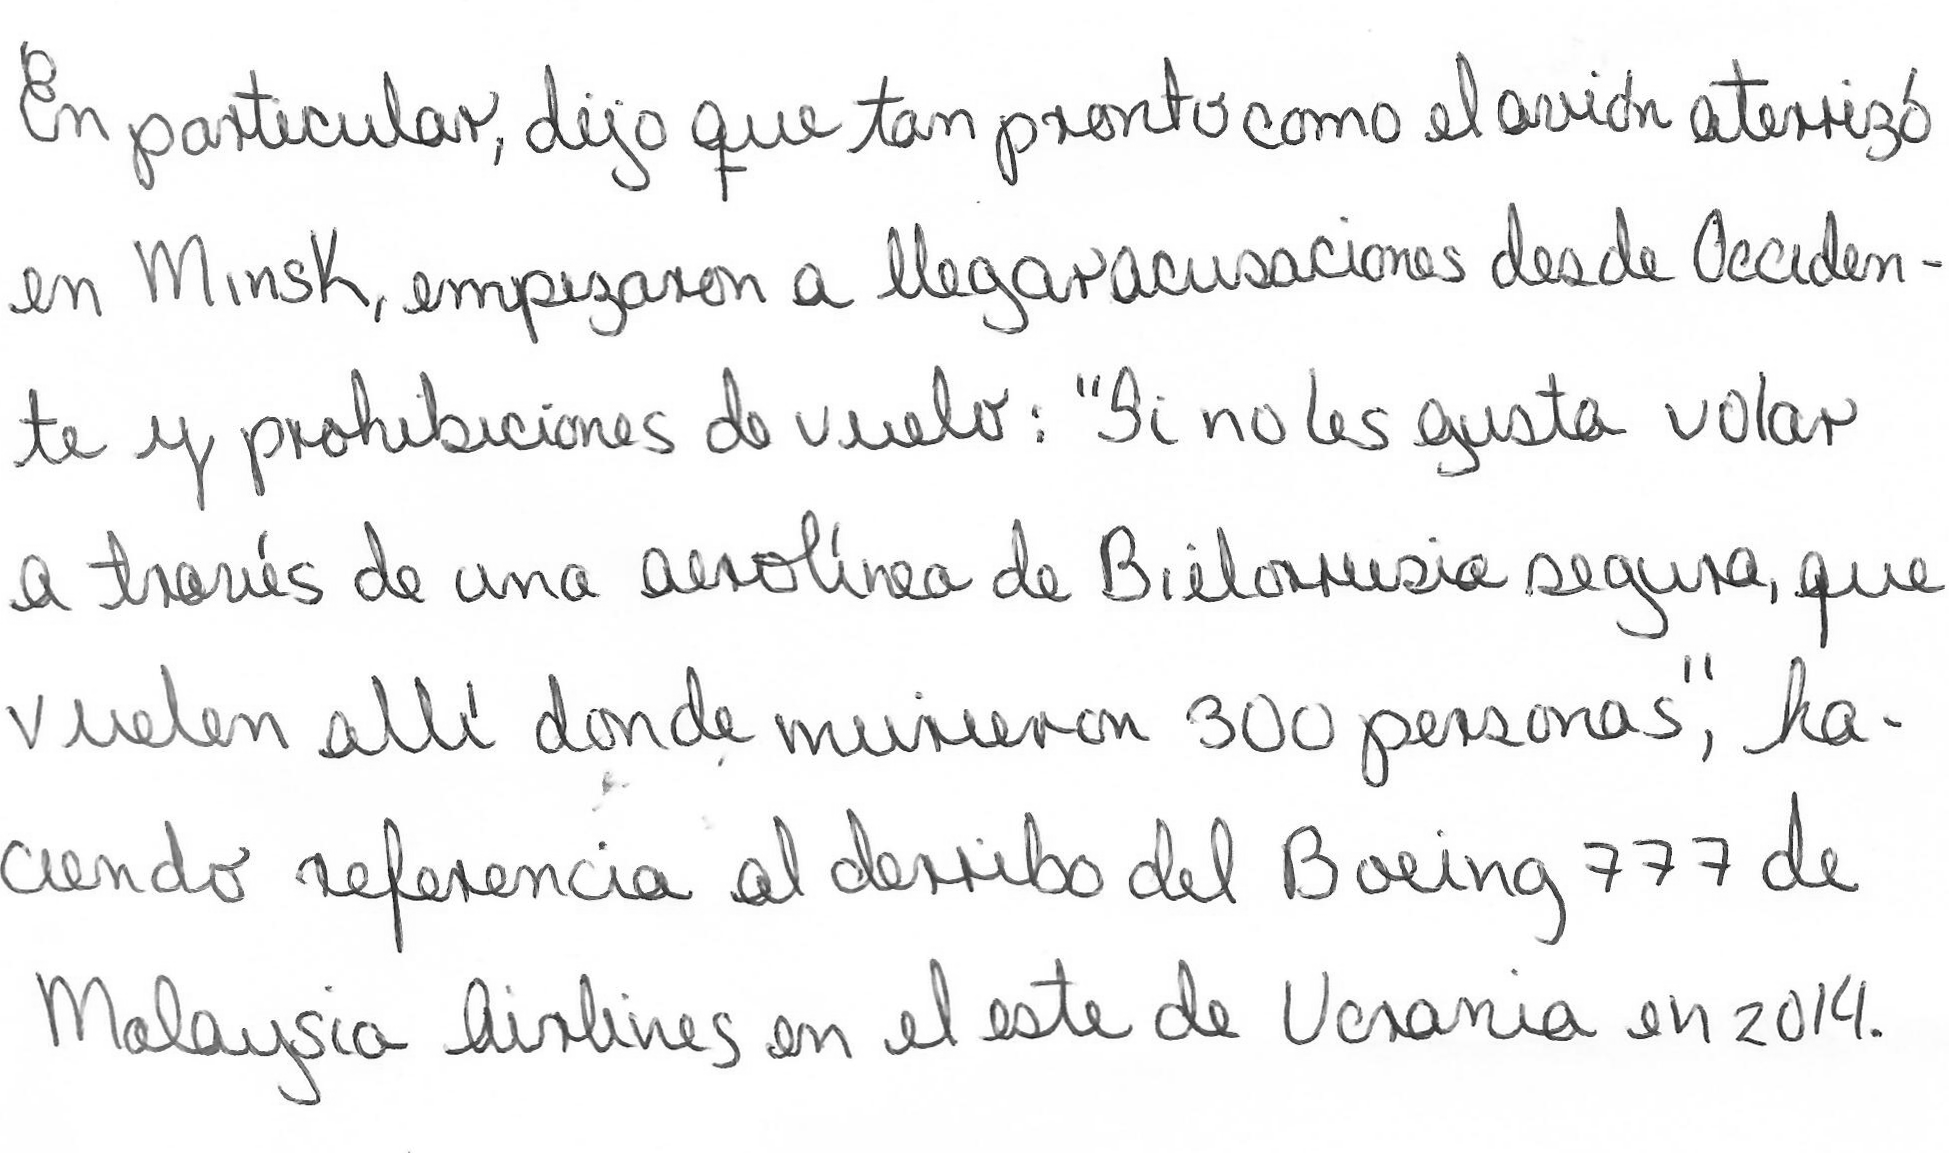 En particular, dijo que tan pronto como el avión aterrizó
en Minsk, empezaron a llegar acusaciones desde Occiden-
te y prohibiciones de vuelo: "Si no les gusta volar
a través de una aerolínea de Bielorrusia segura, que
vuelen allí donde murieron 300 personas", ha-
ciendo referencia al derribo del Boeing 777 de
Malaysia Airlines en el este de Ucrania en 2014.